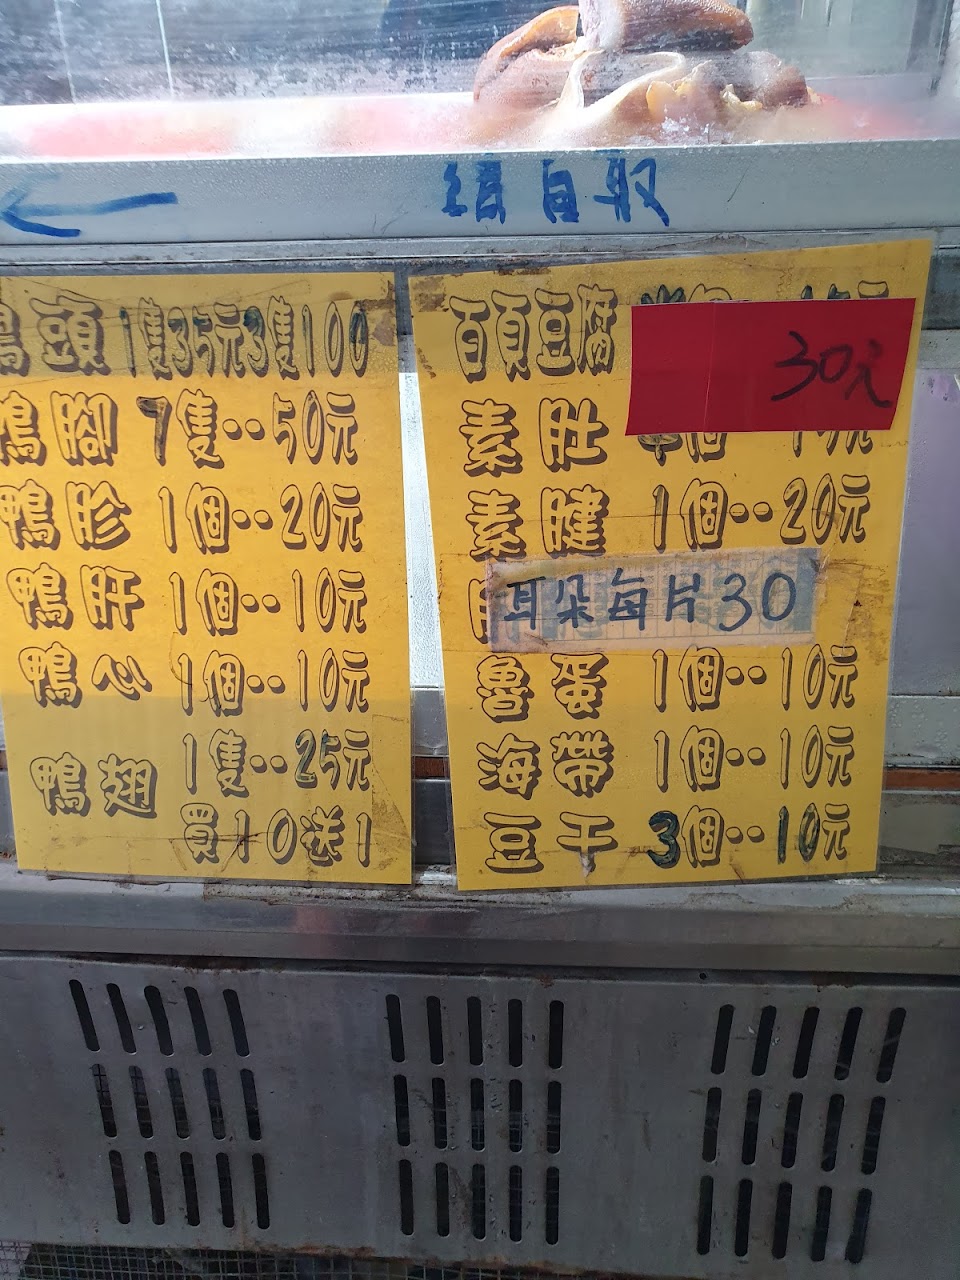 請自取
鴨頭1隻35元3隻100
鴨腳 7隻‥50元
鴨胗 1個‥20元
鴨肝 1個‥10元
鴨心 1個‥10元
鴨翅 1隻‥25元
買10送1
百頁豆腐
30元
素肚
素腱 1個‥20元
耳朵每片30
魯蛋 1個‥10元
海帶 1個‥10元
豆干 3個‥10元